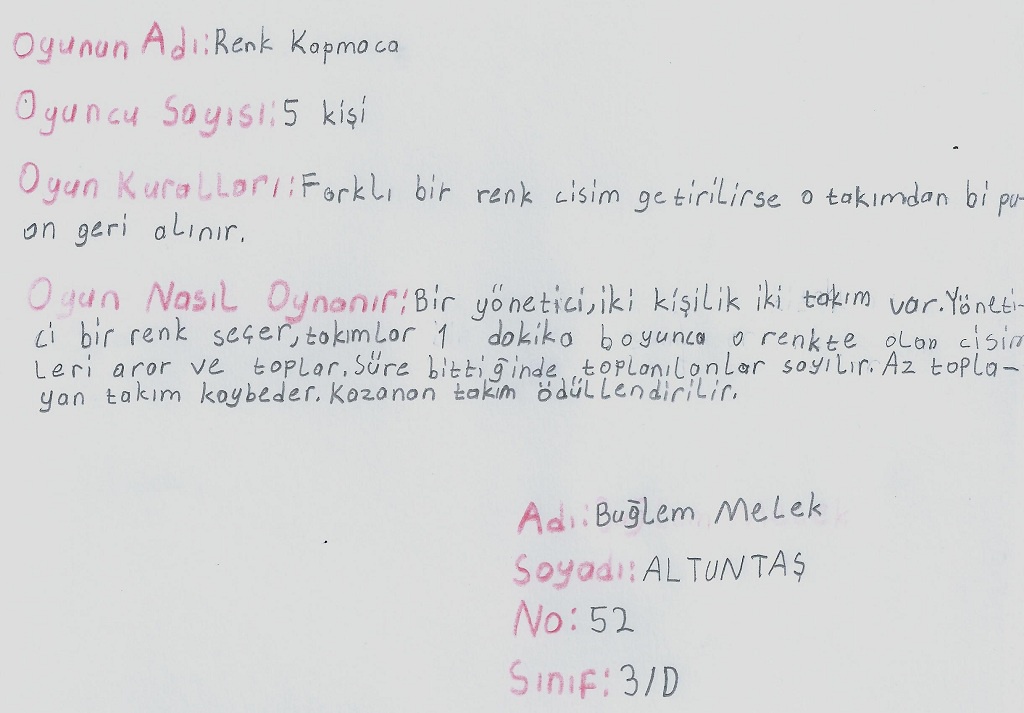 Oyunun Adı: Renk Kapmaca
Oyuncu Sayısı: 5 kişi
Oyun Kuralları: Farklı bir renk cisim getirilirse o takımdan bi pu-
an geri alınır.
Oyun Nasıl Oynanır: Bir yönetici, iki kişilik iki takım var. Yöneti-
ci bir renk seçer, takımlar 1 dakika boyunca o renkte olan cisim
leri arar ve toplar. Süre bittiğinde toplanılanlar sayılır. Az topla-
yan takım kaybeder. Kazanan takım ödüllendirilir.
Adı: Buğlem Melek
Soyadı: ALTUNTAŞ
No: 52
Sınıf: 3/D